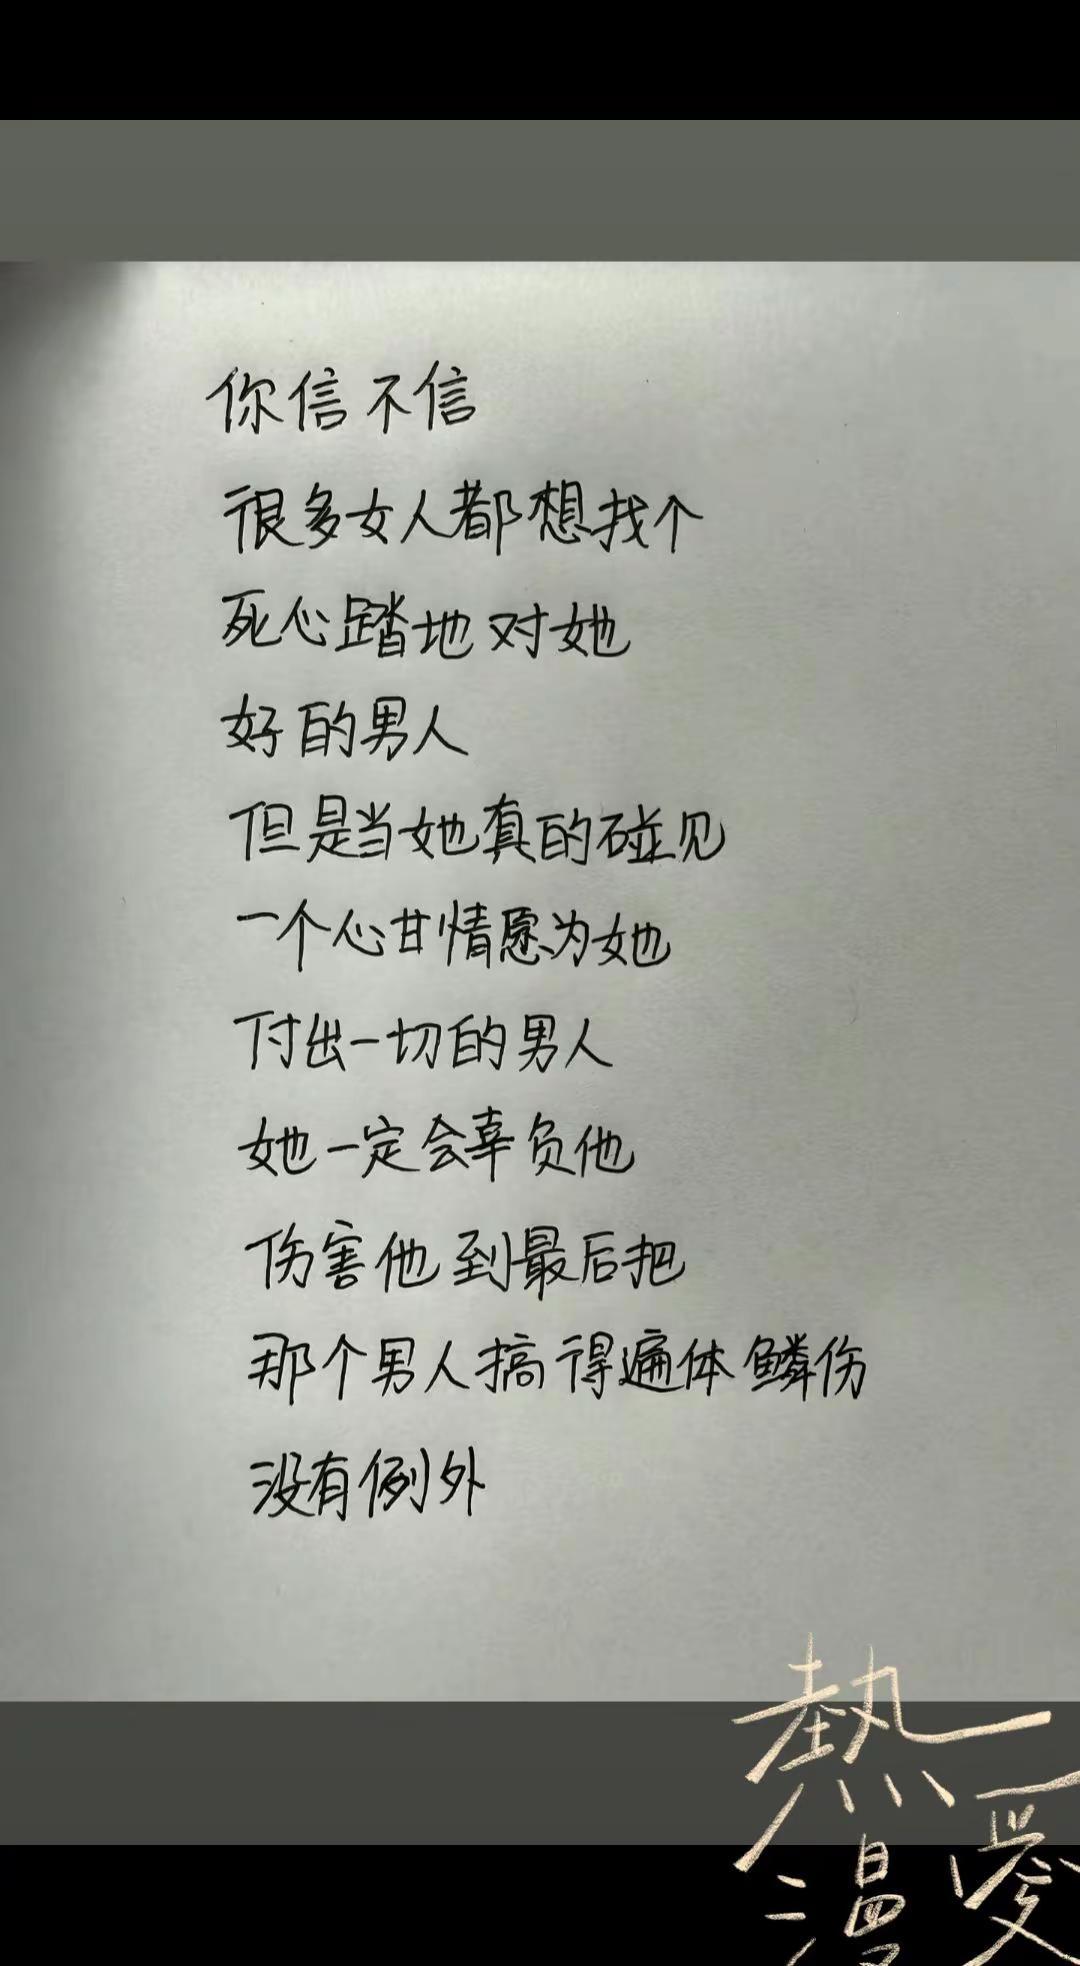 你信不信
很多女人都想找个
死心踏地对她
好的男人
但是当她真的碰见
一个心甘情愿为她
付出一切的男人
她一定会辜负他
伤害他到最后把
那个男人搞得遍体鳞伤
没有例外
熱愛
漫